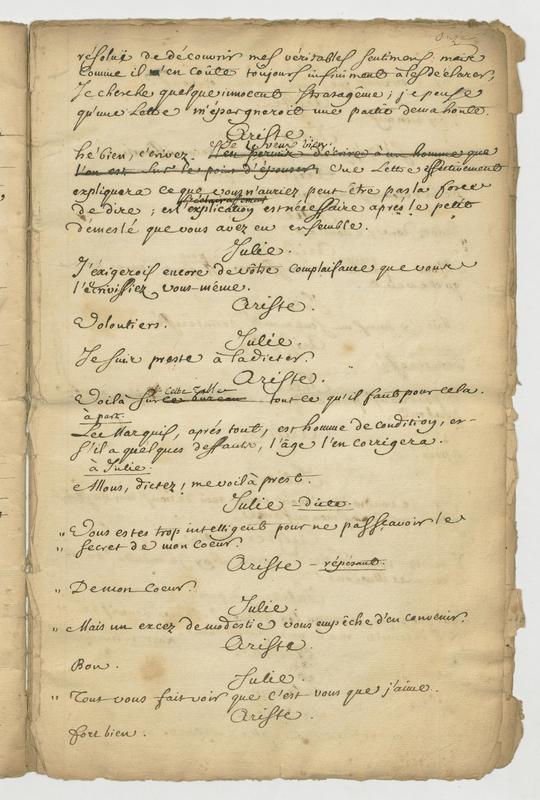 résolüe de découvrir mes véritables sentimens, mais
comme il m'en coûte toujours infiniment à les déclarer,
Je cherche quelque innocent stratagême ; je pense
qu'une Lettre m'épargneroit une partie de ma honte.
Ariste.
Je le veux bien.
hé bien, écrivez. l'on permis d'écrire à un homme que
l'on est sur le point d'épouser. Une Lettre effectivement
expliquera ce que vous n'auriez peut être pas la force
l'éclaircissement
de dire ; est l'explication est nécessaire aprés le petit
démeslé que vous avez eu ensemble.
Julie.
J'éxigerois encore de vôtre complaisance que vous
l'écrivissiez vous-même.
Ariste.
Volontiers.
Julie.
Je suis preste à la dicter.
Ariste.
cette table
Voilà sur ce bureau tout ce qu'il faut pour cela.
à part.
Le Marquis, aprés tout, est homme de condition, et
s'il a quelques deffauts, l'âge l'en corrigera.
à Julie.
Allons, dictez ; me voilà prest.
Julie dicte.
" Vous estes trop intelligent pour ne pas sçavoir le
" secret de mon coeur.
Ariste - répétant.
" De mon coeur.
Julie.
" Mais un excez de modestie vous empêche d'en convenir.
Ariste.
Bon.
Julie.
" Tout vous fait voir que c'est vous que j'aime.
Ariste.
fort bien.